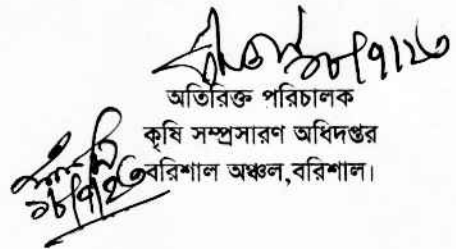 ১৮/৭/২৩
অতিরিক্ত পরিচালক
কৃষি সম্প্রসারণ অধিদপ্তর
বরিশাল অঞ্চল,বরিশাল।
১৮/৭/২৩